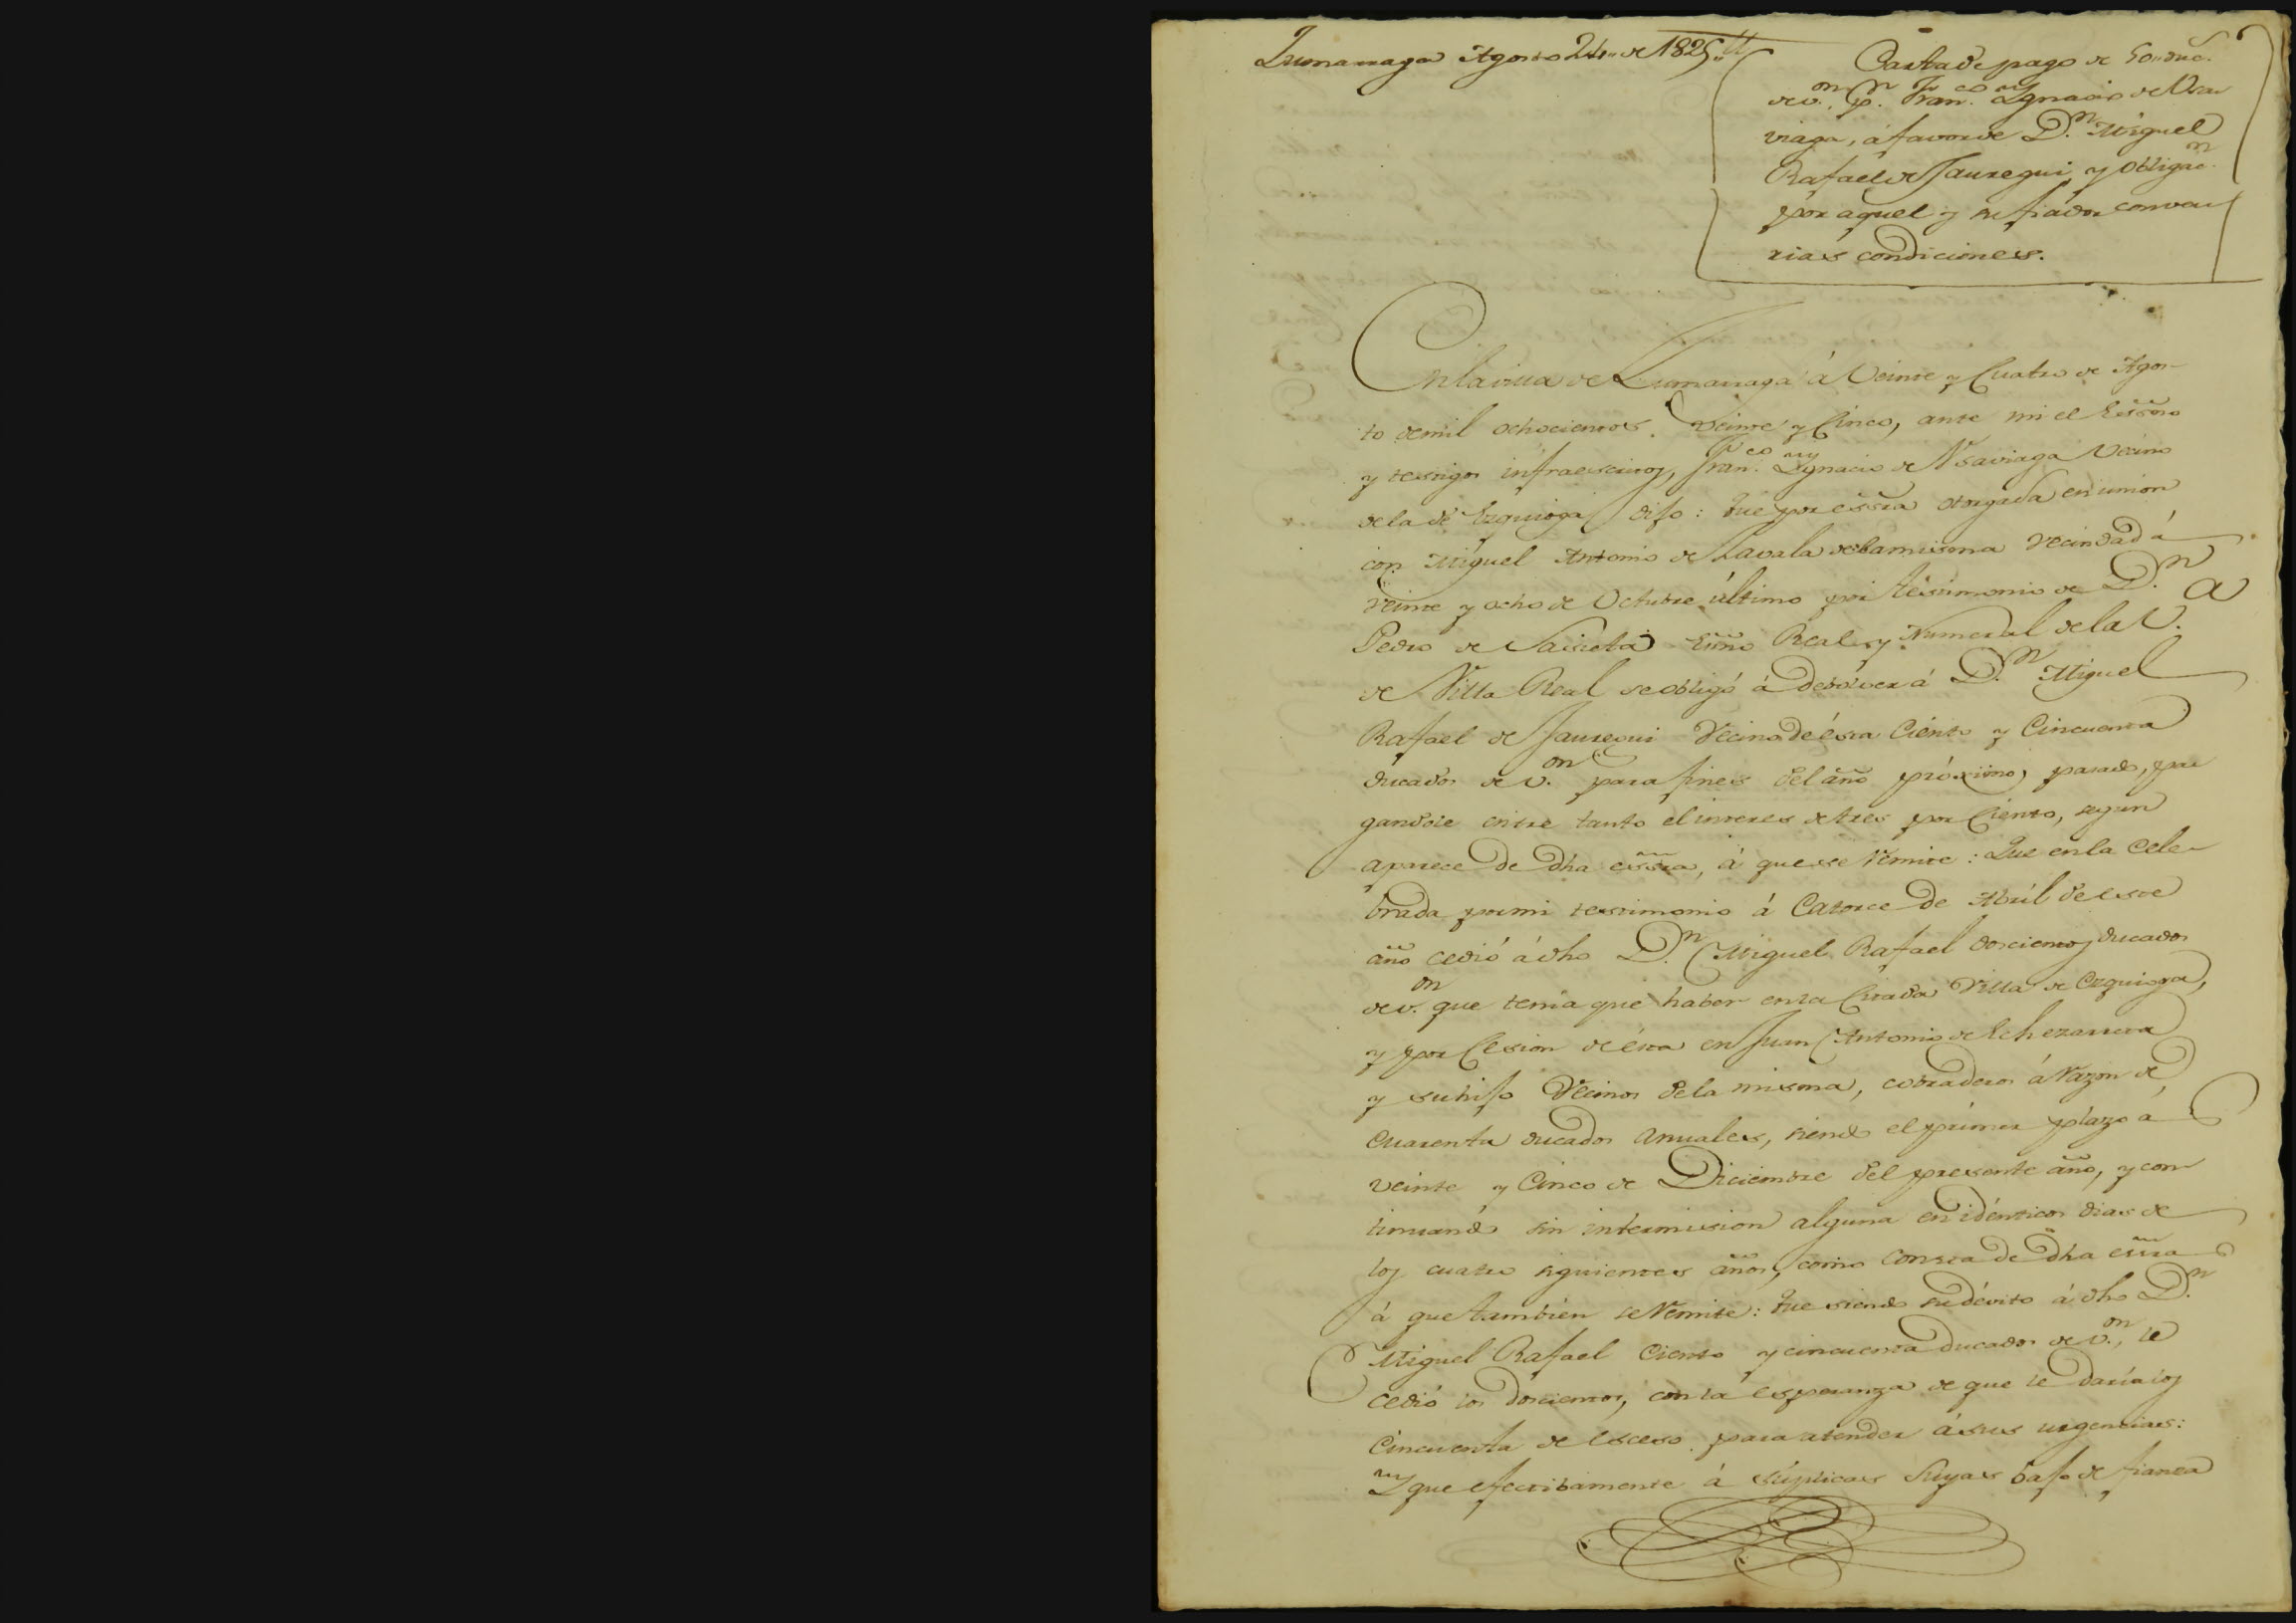 Zumarraga Agosto 24,, de 1825,,
Carta de pago de 50,, duc.
de v.on p.r Fran.co Ygnacio de Usa-
viaga, á favor de D.n Miguel
Rafael de Jauregui, y obligac.n
por aquel y su fiador con va-
rias condiciones.
En la villa de Zumarraga á Veinte y Cuatro de Agos-
to de mil ochocientos veinte y Cinco, ante mi el Essño
y testigos infraescritos, Fran.co Ygnacio de Usaviaga Vecino
de la de Ezquioga dijo: Que por essra otorgada en union
con Miguel Antonio de Zavala de la misma vecindad á
veinte y ocho de Octubre último por testimonio de D.n
Pedro de Essño Real y Numeral de la V.a
de Villa Real se obligó á debolver á D.n Miguel
Rafael de Jauregui Vecino de ésta Ciento y Cincuenta
ducados de v.on para fines del año próximo pasado, pa-
gandole entre tanto el interes de tres por Ciento, segun
aparece de dha essra, á que se remite: Que en la cele-
brada por mi testimonio á Catorce de Abril de este
año cedió á dho D.n Miguel Rafael doscientos ducados
de v.on que tenia que haber en la Citada Villa de Ezquioga,
y por Cesion de ésta en Juan Antonio de Echezarreta
y su hijo Vecinos de la misma, cobraderos á razon de
Cuarenta ducados anuales, siendo el primer plazo á
veinte y Cinco de Diciembre del presente año, y con-
tinuando sin intermision alguna en idénticos dias de
los cuatro siguientes años, como consta de dha essra
á que tambien se remite: Que siendo su dévito á dho D.n
Miguel Rafael Ciento y cincuenta ducados de v.on, le
cedió los doscientos, con la esperanza de que le daría los
Cincuenta de esceso para atender á sus urgencias:
Y que efectibamente á súplicas suyas bajo de fianza